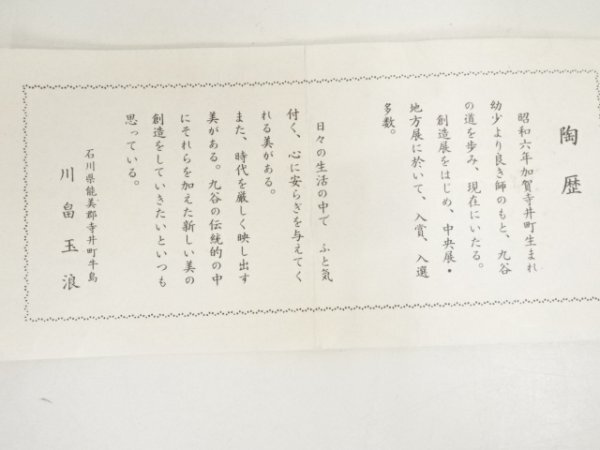 陶歴
昭和六年加賀寺井町生まれ
幼少より良き師のもと、九谷
の道を歩み、現在にいたる。
創造展をはじめ、中央展・
地方展に於いて、入賞、入選
多数。
日々の生活の中で ふと気
付く、心に安らぎを与えてく
れる美がある。
また、時代を厳しく映し出す
美がある。九谷の伝統的の中
にそれらを加えた新しい美の
創造をしていきたいといつも
思っている。
石川県能美郡寺井町牛島
川畠玉浪